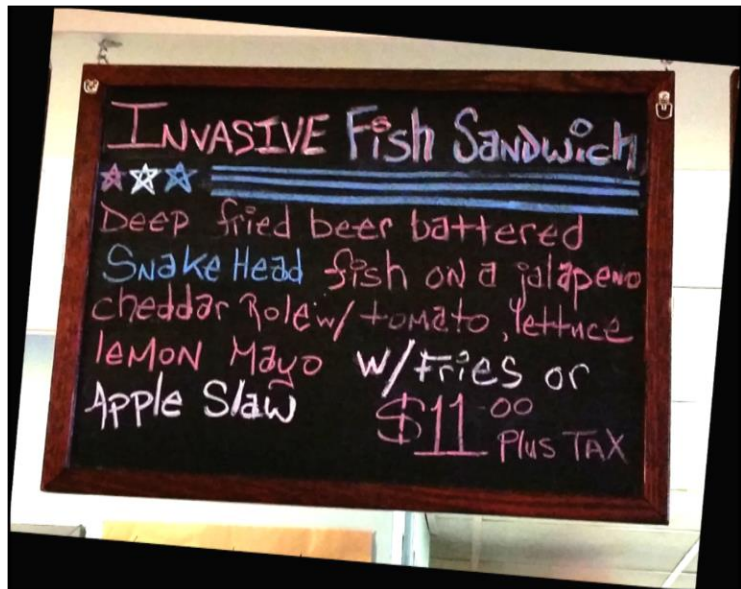 INVASIVE Fish Sandwich
Deep fried beer battered
Snake Head fish on a jalapeno
cheddar Role w/ tomato, lettuce
lemon Mayo w/Fries or
Apple Slaw $11.00
Plus TAX